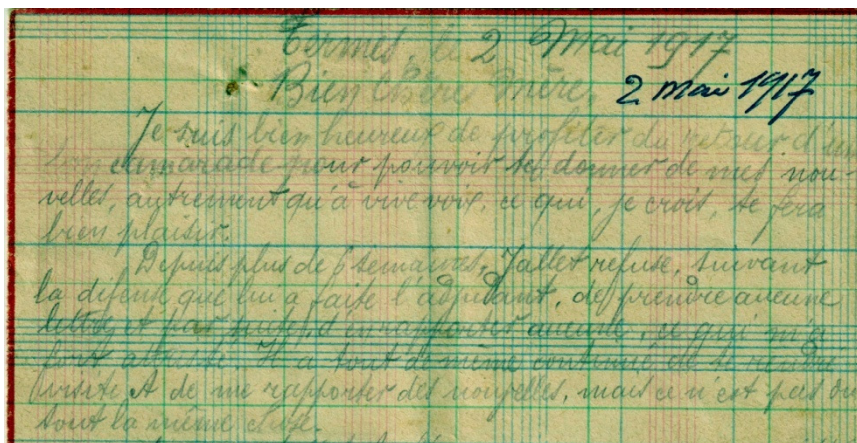 Termes, le 2 Mai 1917
Bien Chère Mère,
2 mai 1917
Je suis bien heureux de profiter du retour d'un
bon camarade pour pouvoir te donner de mes nou-
velles, autrement qu'à vive voix, ce qui, je crois, te fera
bien plaisir.
Depuis plus de 6 semaines, Jallet refuse, suivant
la défense que lui a faite l'adjudant, de prendre aucune
lettre et par suite, d'en rapporter aucune, ce qui m'a
fort attristé. Il a tout de même continué de te rendre
visite et de me rapporter des nouvelles, mais ce n'est pas du
tout la même chose.